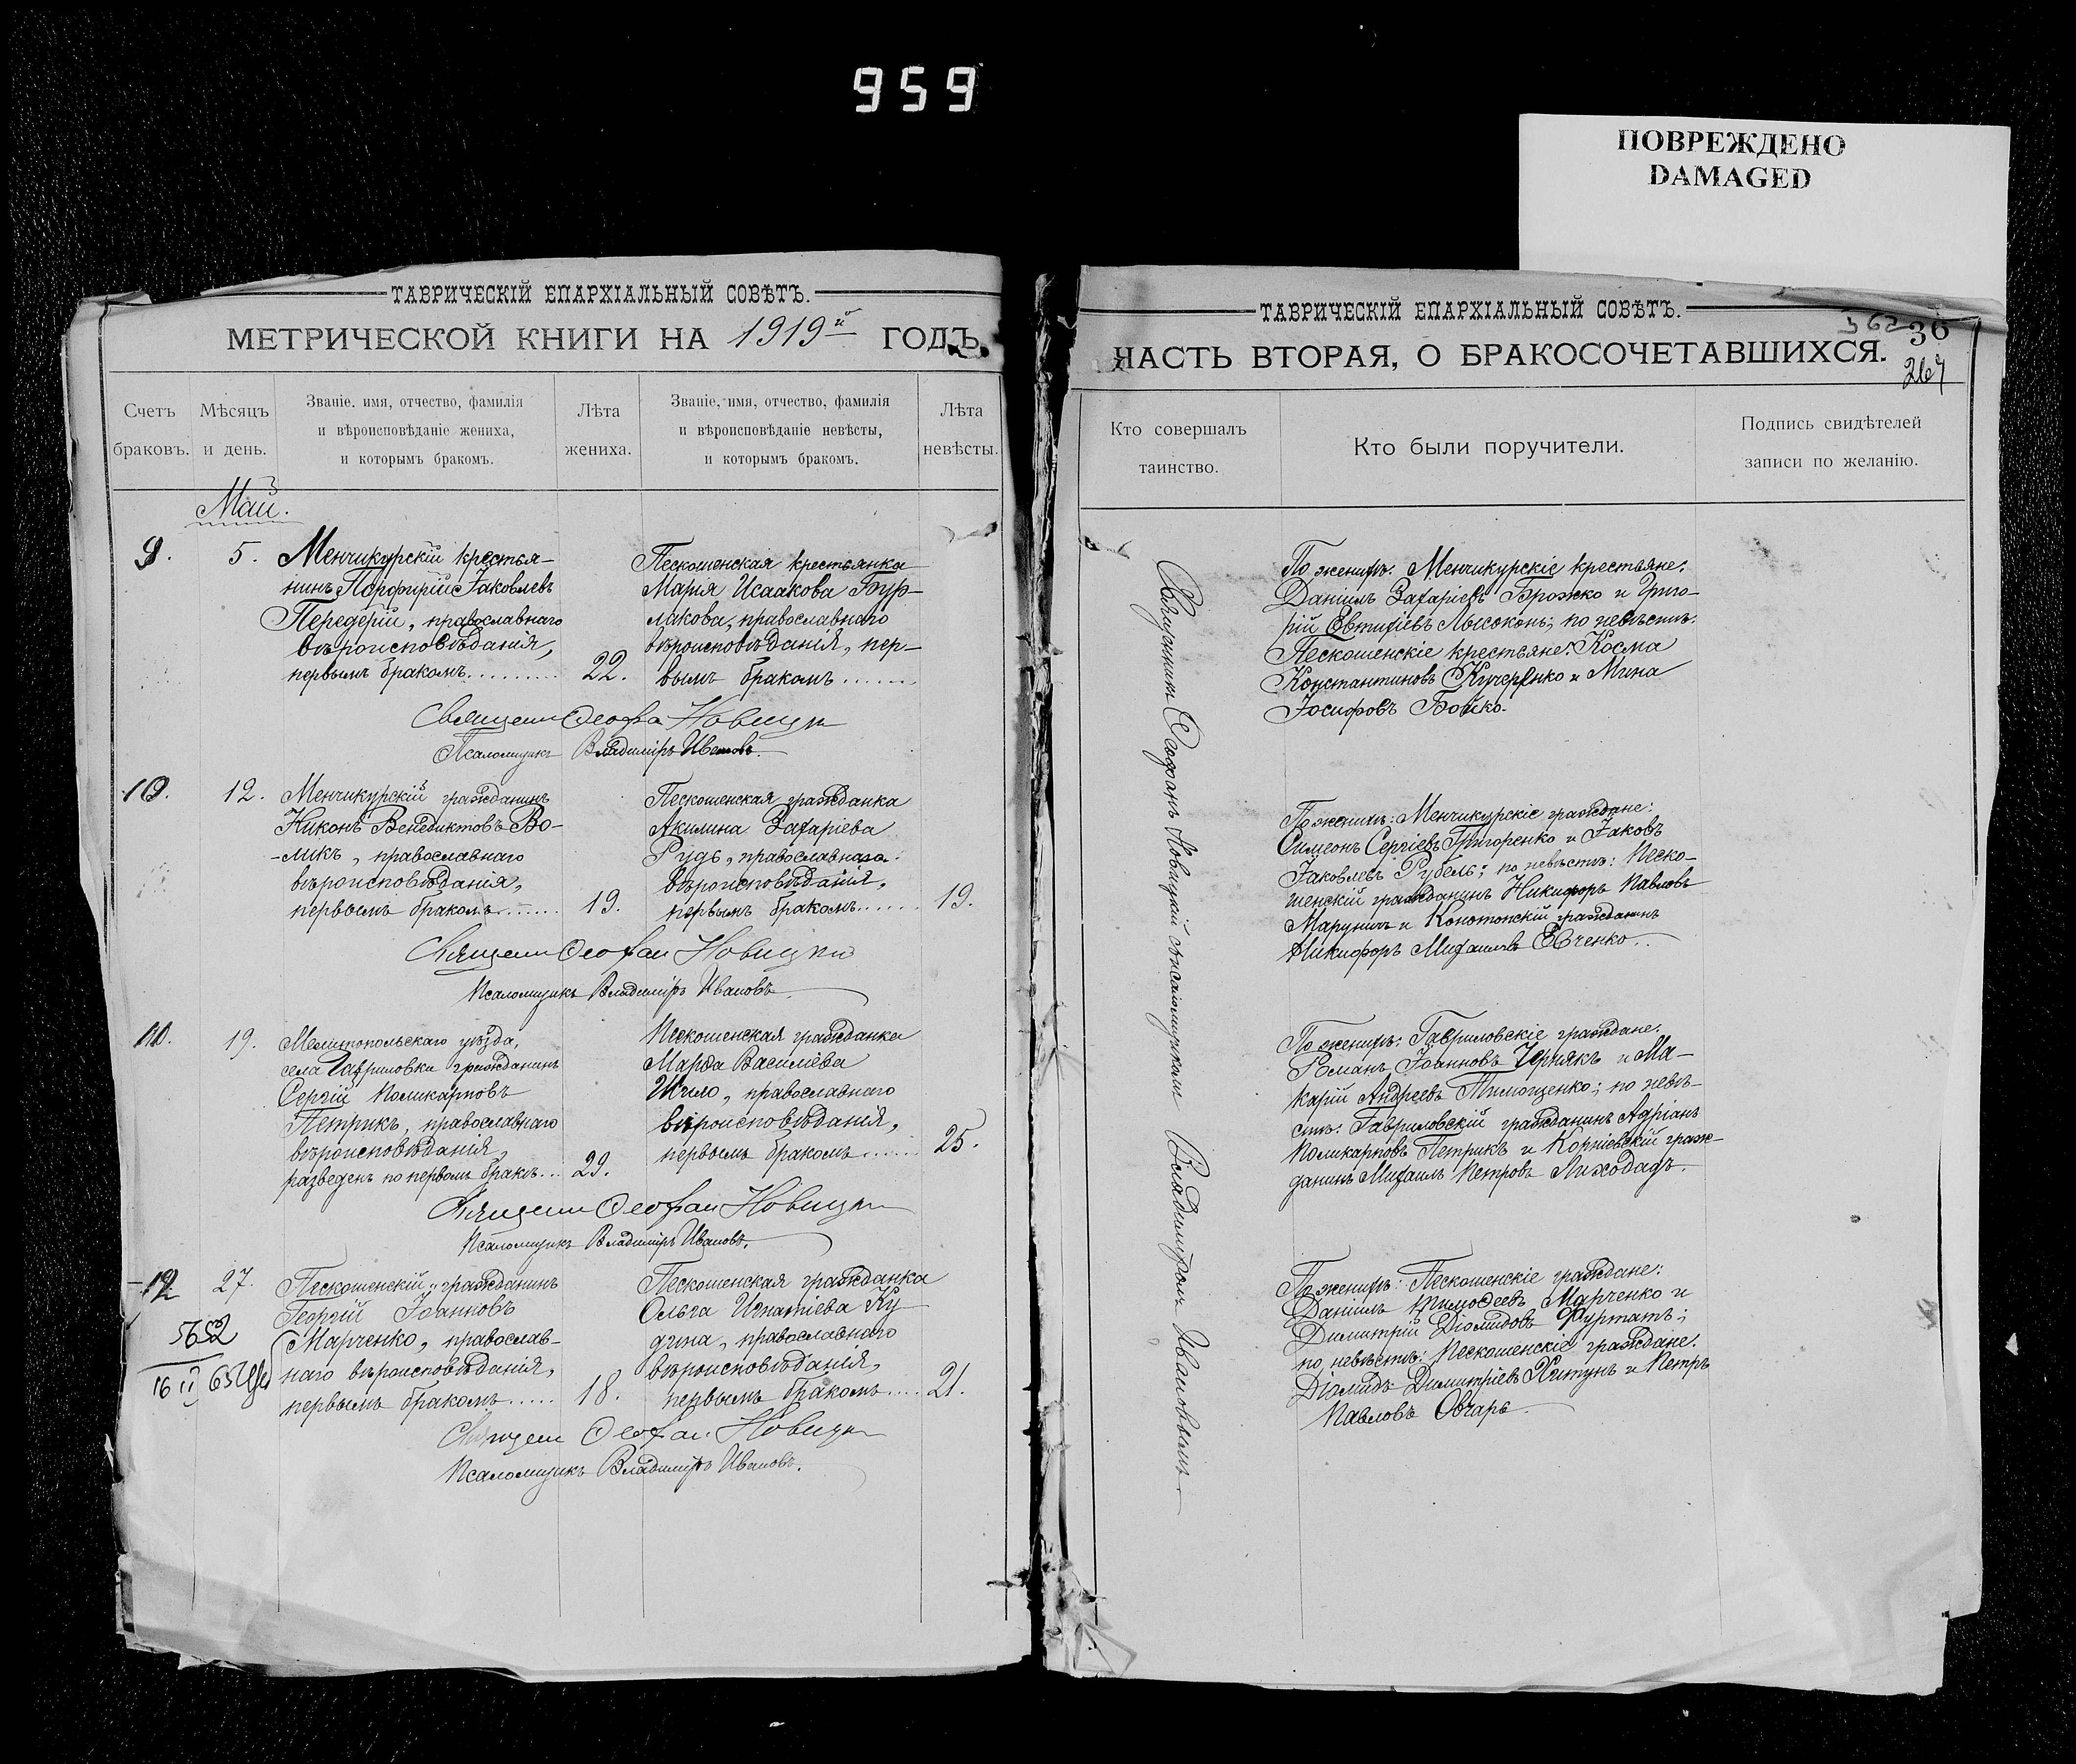 959
ПОВРЕЖДЕНО
DAMAGED
ТАВРИЧЕСКІЙ ЕПАРХІАЛЬНЫЙ СОВѢТЪ.
МЕТРИЧЕСКОЙ КНИГИ НА 1919й ГОДЪ
Счетъ браковъ.
Мѣсяцъ и день.
Званіе, имя, отчество, фамилія
и вѣроисповѣданіе жениха,
и которымъ бракомъ.
Лѣта жениха.
Званіе, имя, отчество, фамилія
и вѣроисповѣданіе невѣсты,
и которымъ бракомъ.
Лѣта невѣсты.
Май.
9.
5.
Менчикурскій крестья-
нинъ Порфирій Іаковлевъ
Передерій, православнаго
вѣроисповѣданія,
первымъ бракомъ
22.
Пескошенская крестьянка
Марія Исаакова Бур-
лакова, православнаго
вѣроисповѣданія, пер-
вымъ бракомъ
Новицкі
Псаломщикъ Владиміръ Ивановъ.
10.
12.
Менчикурскій гражданинъ
Никонъ Венедиктовъ Во-
-ликъ, православнаго
вѣроисповѣданія,
первымъ бракомъ
19.
Пескошенская гражданка
Акилина Захаріева
Рудь, православнаго
вѣроисповѣданія,
первымъ бракомъ
19.
Новицкій
Псаломщикъ Владиміръ Ивановъ.
11.
19.
Мелитопольскаго уѣзда,
села Гавриловки гражданинъ
Сергій Поликарповъ
Петрикъ, православнаго
вѣроисповѣданія,
разведенъ по первомъ бракѣ
29.
Пескошенская гражданка
Марѳа Василіева
православнаго
вѣроисповѣданія,
первымъ бракомъ
25.
Новицкі
Псаломщикъ Владиміръ Ивановъ.
12
27.
Пескошенскій гражданинъ
Георгій Іоанновъ
Марченко, православ-
наго вѣроисповѣданія,
первымъ бракомъ
18.
Пескошенская гражданка
Ольга Игнатіева Ку-
православнаго
вѣроисповѣданія,
первымъ бракомъ
21.
Новицкі
Псаломщикъ Владиміръ Ивановъ.
ТАВРИЧЕСКІЙ ЕПАРХІАЛЬНЫЙ СОВѢТЪ.
36
267
ЧАСТЬ ВТОРАЯ, О БРАКОСОЧЕТАВШИХСЯ.
Кто совершалъ таинство.
Кто были поручители.
Подпись свидѣтелей
записи по желанію.
Священникъ Ѳеофанъ Новицкій съ псаломщикомъ Владиміромъ Ивановымъ
По женихѣ: Менчикурскіе крестьяне:
Даніилъ Захаріевъ Брожко и Григо-
рій Евтихіевъ Лысоконь; по невѣстѣ:
Пескошенскіе крестьяне: Косма
Константиновъ Кучеренко и Мина
Іосифовъ Бойко.
По женихѣ: Менчикурскіе граждане:
Симеонъ Сергіевъ Григоренко и Іаковъ
Іаковлевъ Рубель; по невѣстѣ: Песко-
шенскій гражданинъ Никифоръ Павловъ
Маруничъ и Конотопскій гражданинъ
Никифоръ Михаиловъ Евченко.
По женихѣ: Гавриловскіе граждане:
Романъ Іоанновъ Чернякъ и Ма-
карій Андреевъ Тимощенко; по невѣ-
стѣ: Гавриловскій гражданинъ Адріанъ
Поликарповъ Петрикъ и Корніевскій граж-
данинъ Михаилъ Петровъ Лиходадъ.
По женихѣ: Пескошенскіе граждане:
Даніилъ Тимоѳеевъ Марченко и
Димитрій Діомидовъ Фуртатъ;
по невѣстѣ: Пескошенскіе граждане:
Діомидъ Димитріевъ Хитунъ и Петръ
Павловъ Овчаръ.